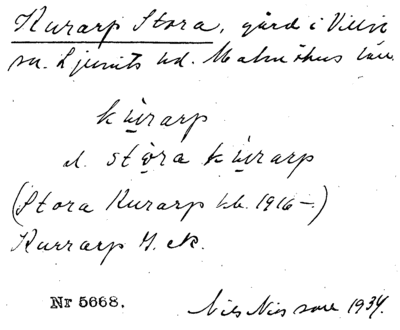 Kurarp Stora, gård i Villie
sn. Ljunits hd. Malmöhus län.
kụ̀rarp
el. stọ̀ra kụ̀rarp
(Stora Kurarp kb. 1916–.)
Kurrarp J. ek.
Nr 5668.
Nils Nilsson 1934.